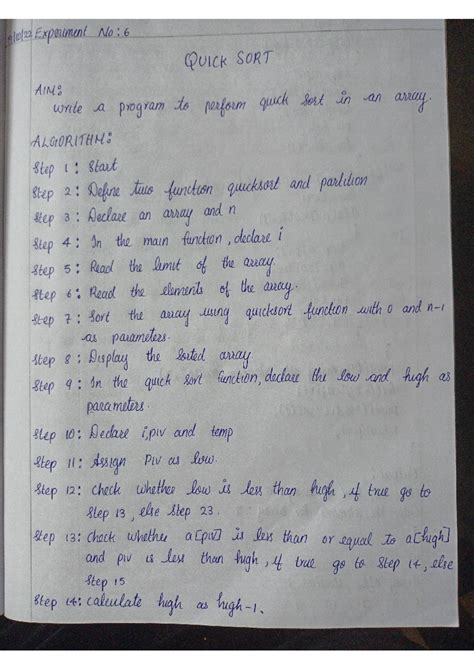 /10/22 Experiment No: 6
QUICK SORT
AIM:
Write a program to perform quick sort in an array.
ALGORITHM:
Step 1: Start
Step 2: Define two function quicksort and partition
Step 3: Declare an array and n
Step 4: In the main function, declare i
Step 5: Read the limit of the array.
Step 6: Read the elements of the array.
Step 7: Sort the array using quicksort function with 0 and n-1
as parameters.
Step 8: Display the sorted array
Step 9: In the quick sort function, declare the low and high as
parameters.
Step 10: Declare i, piv and temp
Step 11: Assign Piv as low.
Step 12: check whether low is less than high, if true go to
Step 13, else Step 23.
Step 13: check whether a[piv] is less than or equal to a[high]
and piv is less than high, if true go to Step 14, else
Step 15
Step 14: calculate high as high-1.